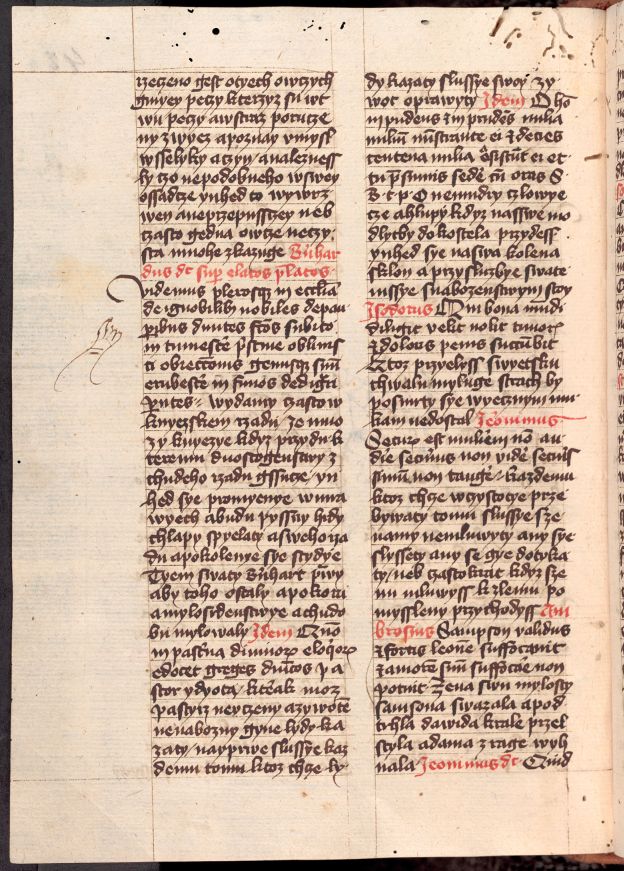 rzeczeno gest otyech owczych
gmyey peczy kterzyz su wt
wu peczy aw straz porucze
ny zwyecz apoznay vmysl
wsselyky aczyn analezness
ly tzo nepodobneho wswey
ossadcze ynhed to wywrz
wen aneprzepusstzey neb
czasto gedna owcze neczy
sta mnohe zkazuge Bnhar
dus dt sup elatos platos
videmus plerosq in ecclia
de ignobilib nobiles depau
pibus diuites fcos subito
in tumesce pstine obliuis
ti obrectonis genusq suu
erubesce infimos dedigna
pntes wydamy czasto w
knyezskem rzadu ze mno
zy knyezye kdyz przydu k
kteremu duostogenstwy z
chudeho rzadu gssucze yn
hed sye promyenye w una
wyech abudu pyssny hidy
chlapy spyelaty asweho rza
du apokolenye sye stydye
Tyem swaty Bnhart prwy
aby toho ostaly apokoru
amylosrdenstwye achudo
bu mylowaly Idem Quo
in pastua diuinor eloqor
edocet greges dnicos pa
stor ydyota kterak moz
pastyrz neuczeny azywote
nenabozny gyne lydy ka
zaty nayprwe slussye kaz
demu tomu ktoz chcze ly
dy kazaty slussye swoy zy
wot oprawyty Idem O ho
inpudens et inprudens milia
miliu ministrante ei et decies
centena milia assistunt ei et
tu psumis sede cu oras S
B t p O nemudry czlowye
cze ahlupy kdyz nasswe mo
dlytby do kostela przydess
ynhed sye naswa kolena
sklon a przysluzbye swate
mssye snabozenstwym stoy
Isodorus Qui bona mudi
diligit velit nolit timor
et doloris penis sucubit
Ktoz przyelyss swyetsku
chwalu myluge strach by
posmrty sye wyecznym mu
kam nedostal Ieronimus
Secur est muliem no au
die securus non vide securs
simu non tange kazdemu
ktoz chcze wczystocye prze
bywaty tomu slussye sze
namy nemluwyty any sye
slysseti any se gye dotyka
ty neb czastokrat kdyz sze
nu mluwyss k zlemu po
myssleny przychodyss Am
brosius Sampson validus
et fortis leone suffocauit
et amore suu suffocare non
potuit Zena swu mylosty
samsona swazala apod
trhla dawida krale przel
styla adama z rage wyh
nala Ieronimus dt Quid